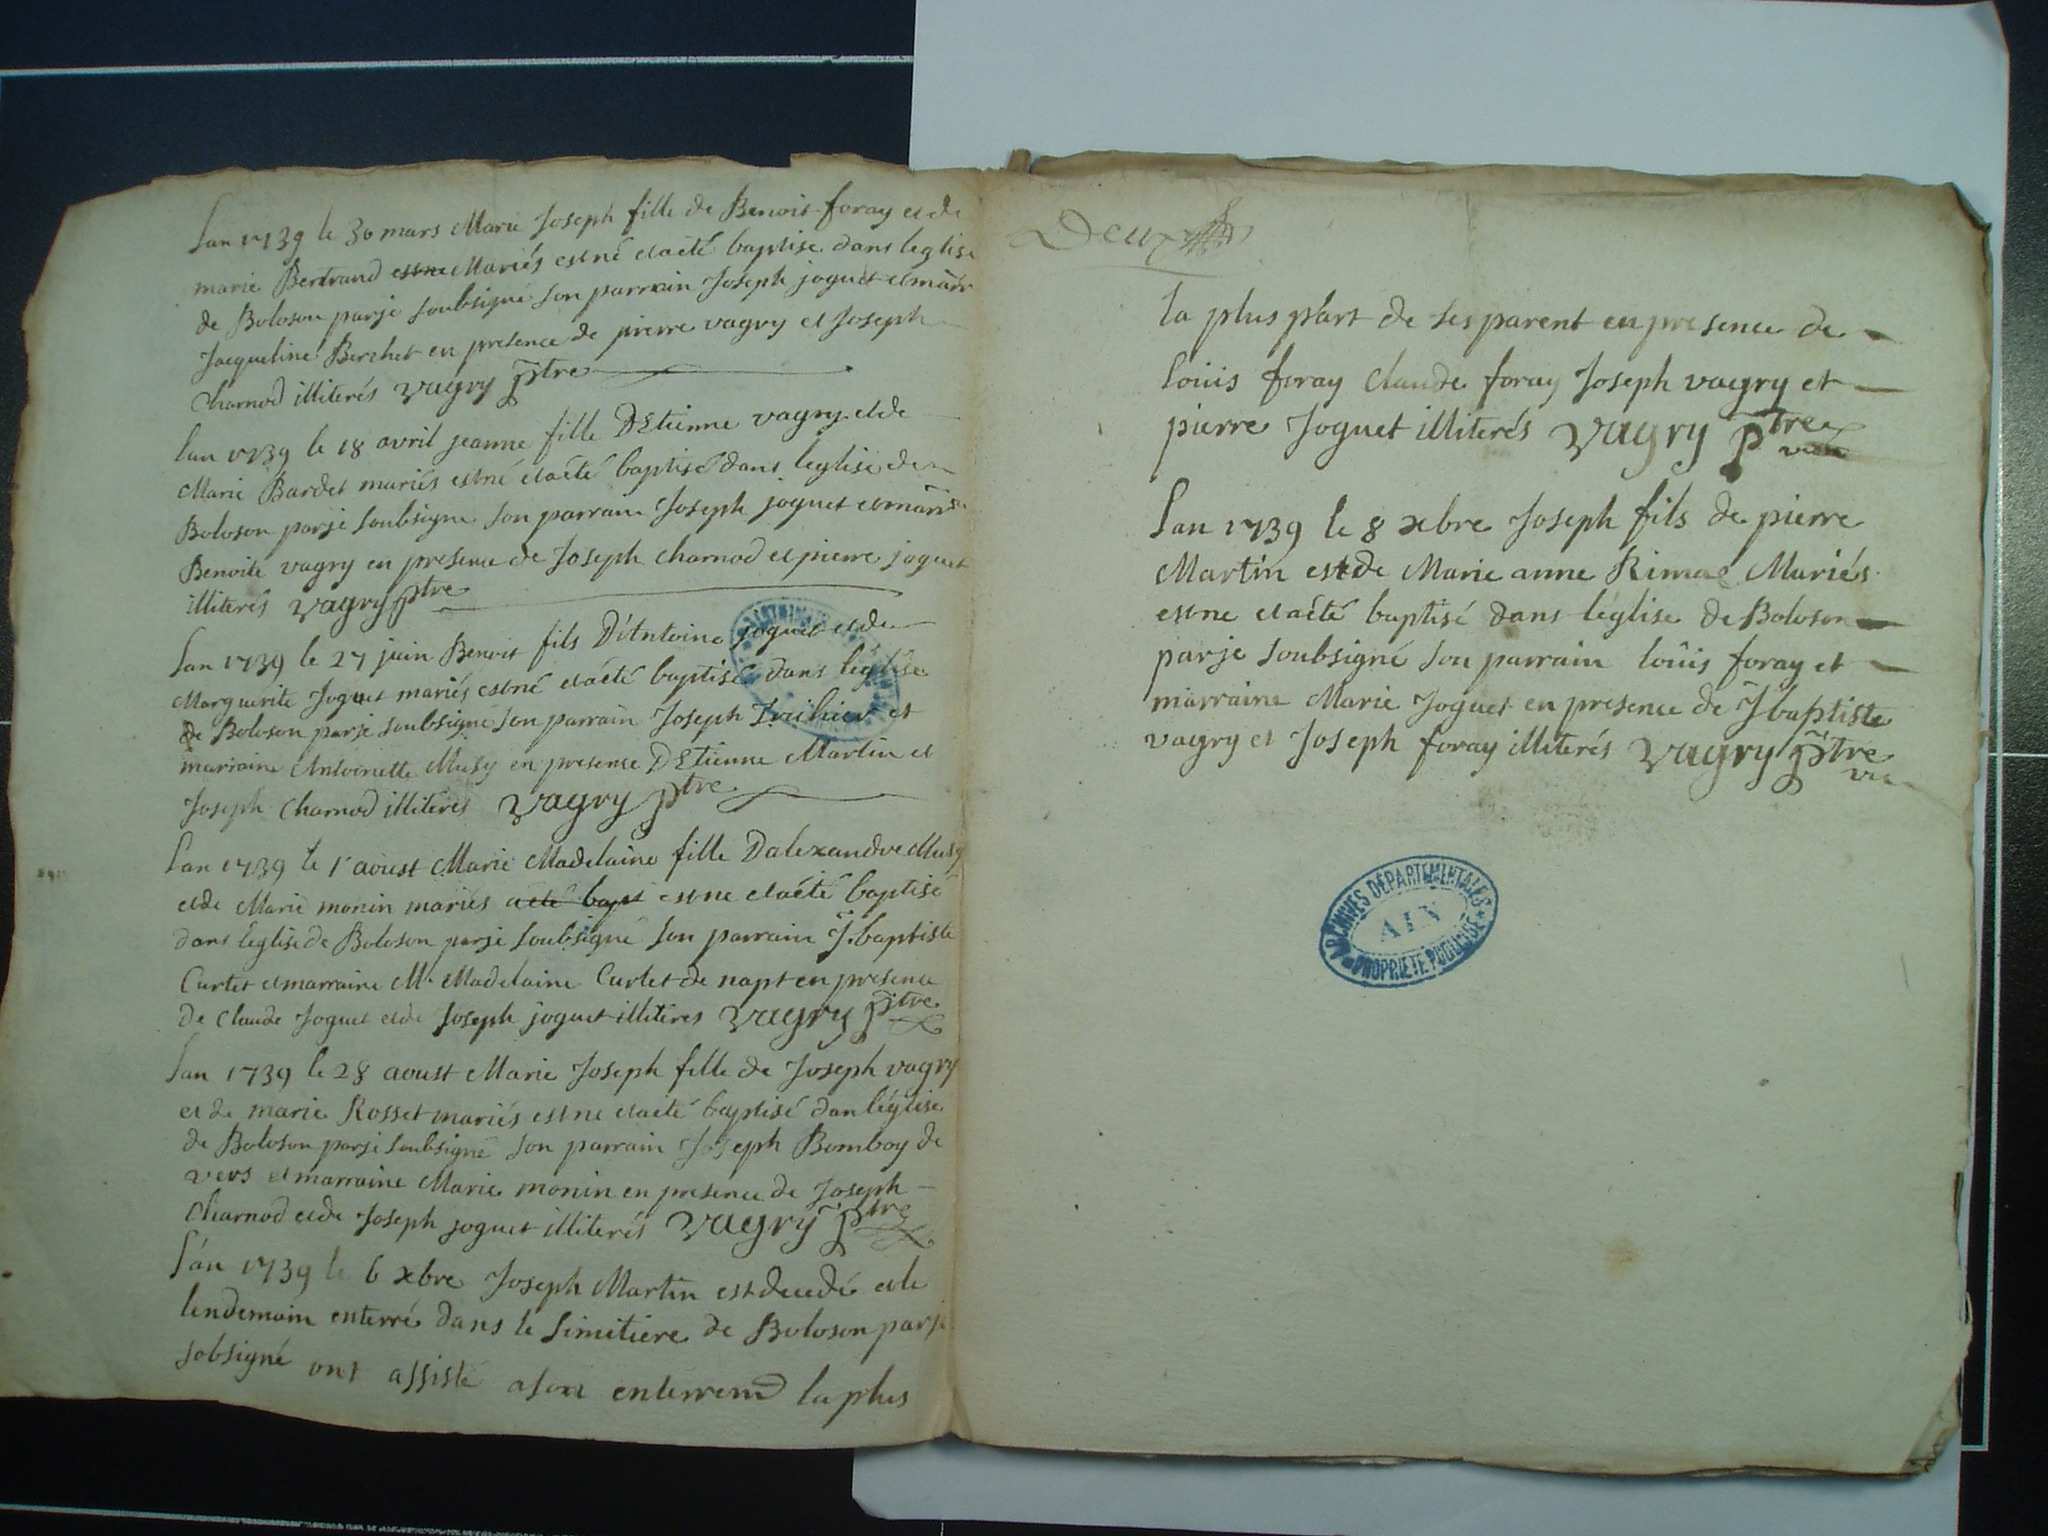 Lan 1739 le 30 mars Marie Joseph fille de Benoit foray et de
marie Bertrand estne Mariés est né et a été baptise dans leglise
de Boloson par je soubsigné son parrain Joseph joguet et marr
Jacqueline Berchet en presence de pierre vagry et Joseph
Charnod illiterés vagry ptre
lan 1739 le 18 avril jeanne fille D'Etienne vagry et de
Marie Bardet mariés est né et a été baptisé dans leglise de
Boloson par je soubsigne son parrain Joseph joguet et marr
Benoite vagry en presence de Joseph charnod et pierre joguet
illiterés vagry ptre
Lan 1739 le 27 juin Benoit fils D'Antoine joguet et de
Marguerite Joguet mariés est né et a été baptisé dans léglise
de Boloson par je soubsigné son parrain Joseph et
marraine Antoinette Musy en presence D'Etienne Martin et
Joseph Charnod illiterés vagry ptre
Lan 1739 le 1r aoust Marie Madelaine fille Dalexandre Musy
et de Marie monin mariés a été bapt est ne et a été baptisé
dans leglise de Boloson par je soubsigné son parrain J. baptiste
Curtet et marraine M. Madelaine Curtet de napt en presence
de Claude Joguet et de Joseph joguet illiteres vagry ptre
Lan 1739 le 28 aoust Marie Joseph fille de Joseph vagry
et de marie Rosset mariés est ne et a été baptisé dan léglise
de Boloson par je soubsigné son parrain Joseph Bomboy de
vers et marraine Marie monin en presence de Joseph
Charnod et de Joseph joguet illiterés vagry ptre
L'an 1739 le 6 xbre Joseph Martin est decedé et le
lendemain enterré dans le simitiere de Boloson par je
sobsigné ont assisté a son enterremd la plus
Deux
la plus part de ses parent en presence de
louis foray Claude foray Joseph vagry et
pierre Joguet illiterés vagry ptre
Lan 1739 le 8 xbre Joseph fils de pierre
Martin et de Marie anne Mariés
est ne et a été baptisé dans léglise de Boloson
par je soubsigné son parrain loüis foray et
marraine Marie Joguet en presence de J baptiste
vagry et Joseph foray illiterés vagry ptre
ARCHIVES DEPARTEMENTALES
AIN
PROPRIETE PUBLIQUE